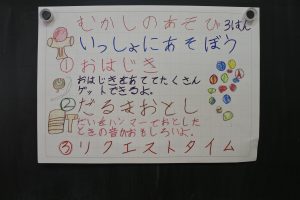 むかしのあそび 3はん
いっしょにあそぼう
① おはじき
おはじきをあててたくさん
ゲットできるよ。
② だるまおとし
だいをハンマーでおとした
ときの音がおもしろいよ。
③ リクエストタイム